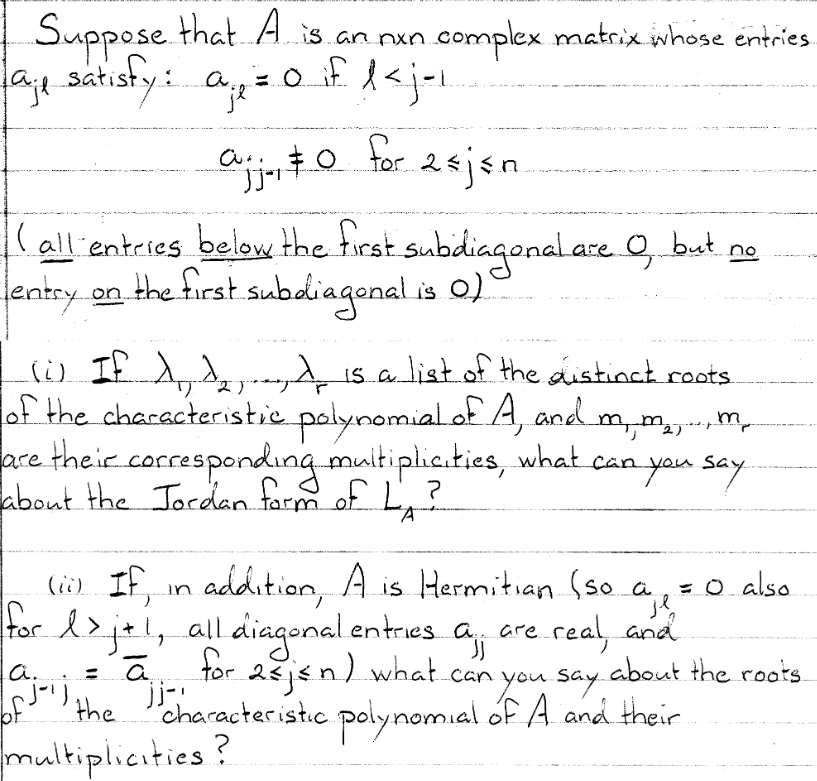 Suppose that A is an nxn complex matrix whose entries
a_{jl} satisfy: a_{jl} = 0 if l < j-1
a_{jj-1} ≠ 0 for 2 ≤ j ≤ n
(all entries below the first subdiagonal are 0, but no
entry on the first subdiagonal is 0)
(i) If λ_1, λ_2, ..., λ_r is a list of the distinct roots
of the characteristic polynomial of A, and m_1, m_2, ..., m_r
are their corresponding multiplicities, what can you say
about the Jordan form of L_A?
(ii) If, in addition, A is Hermitian (so a_{jl} = 0 also
for l > j+1, all diagonal entries a_{jj} are real, and
a_{j-1j} = \bar{a}_{jj-1} for 2 ≤ j ≤ n) what can you say about the roots
of the characteristic polynomial of A and their
multiplicities?